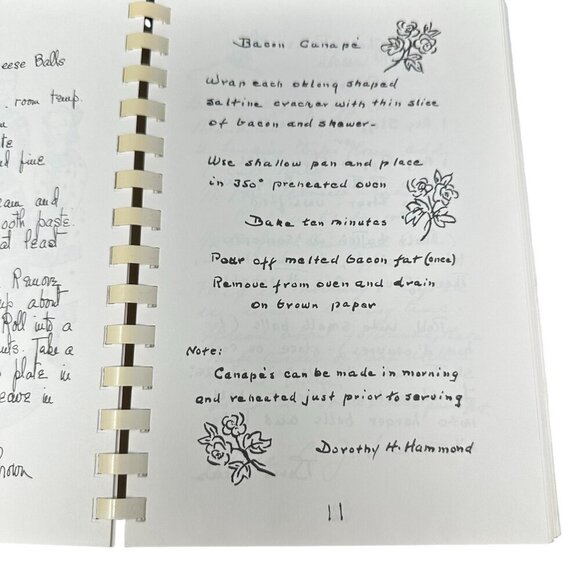 eese Balls
room temp.
te
d fine
eam and
ooth paste.
at least
Remove
up about
Roll into a
uts. Take a
plate in
eave in
rown
Bacon Canapé
Wrap each oblong shaped
saltine cracker with thin slice
of bacon and skewer-
Use shallow pan and place
in 350° preheated oven
Bake ten minutes
Pour off melted bacon fat (once)
Remove from oven and drain
on brown paper
Note:
Canapés can be made in morning
and reheated just prior to serving
Dorothy H. Hammond
11